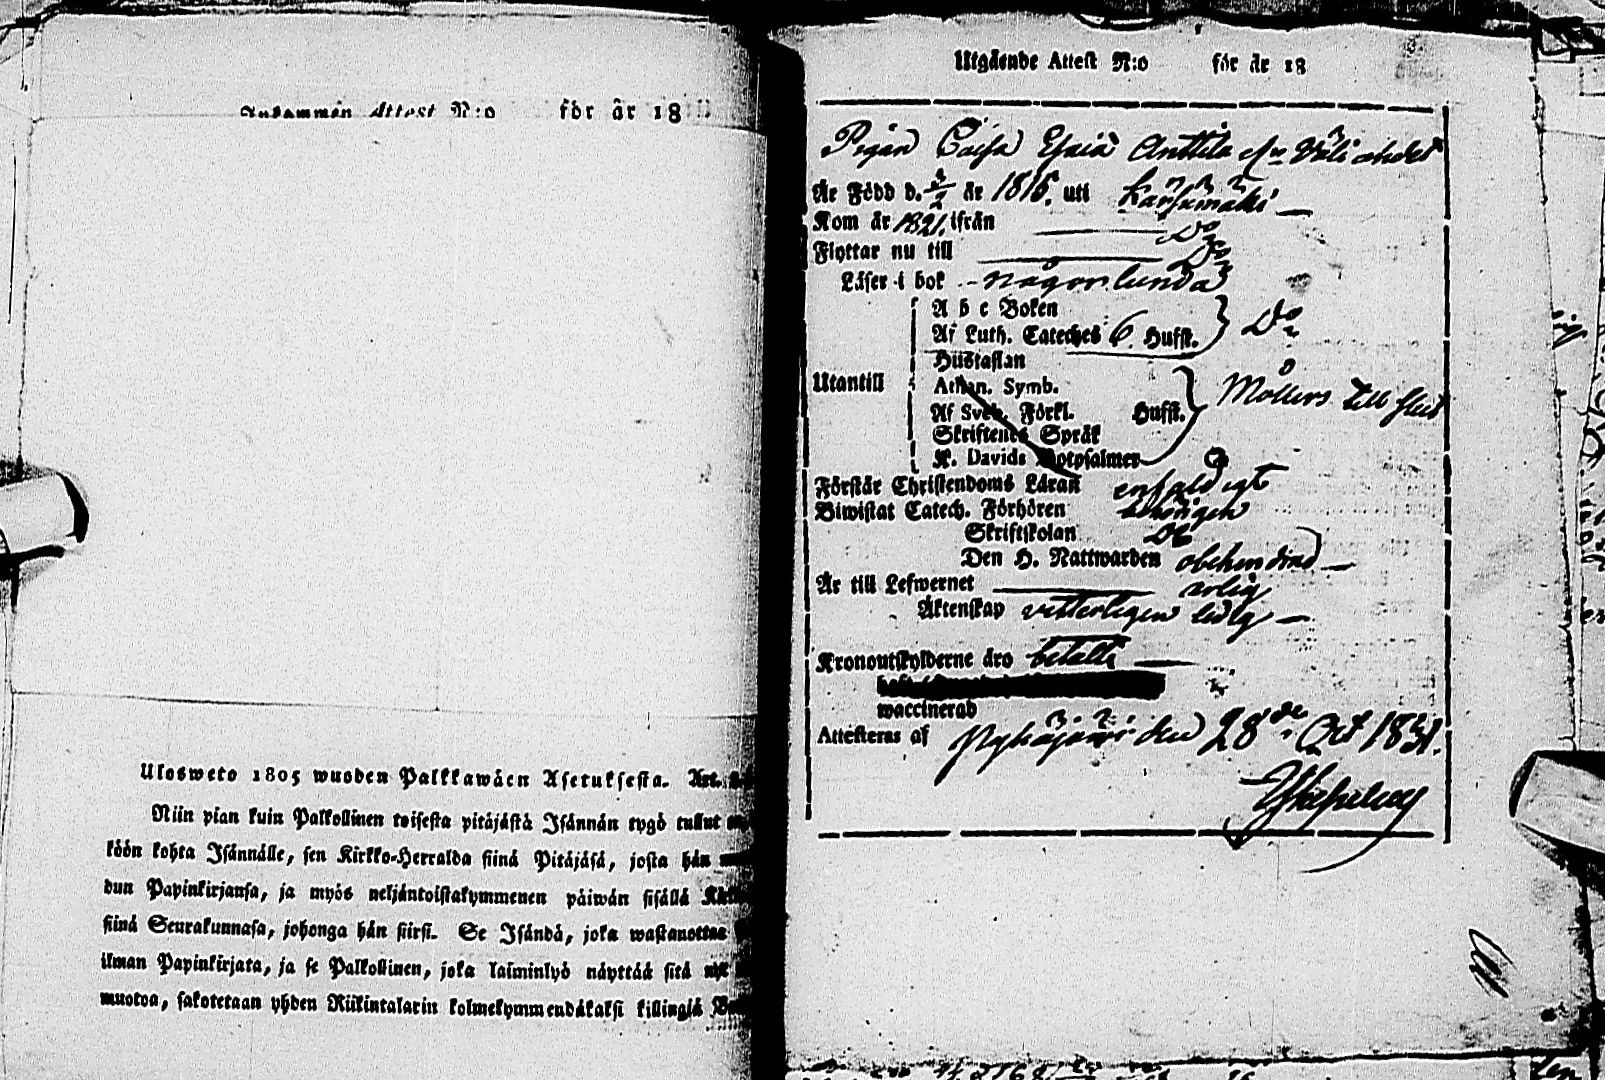 Inkommen Attest N:o för år 18
Ulosweto 1805 wuoden Palkkawäen Asetuksesta. Art.
Niin pian kuin Palkollinen toisesta pitäjästä Isännän tygö tullut
köön kohta Isännälle, sen Kirkko-Herralda siinä Pitäjäsä, josta hän
dun Papinkirjansa, ja myös neljäntoistakymmenen päiwän sisällä
siinä Seurakunnasa, johonga hän siirsi. Se Isändä, joka wastanottaa
ilman Papinkirjata, ja se Palkollinen, joka laiminlyö näyttää sitä
muotoa, sakotetaan yhden Riikintalarin kolmekymmendäkaksi killingiä
Utgående Attest N:o för år 18
Pigan Caisa Esaiæ Anttila
Är Född d. år 1816. uti Kärsämäki
Kom år 1821. ifrån Do
Flyttar nu till Do
Läser i bok någorlunda
A b c Boken
Af Luth. Cateches 6 Hufst. Do
Hustaflan
Utantill Athan. Symb.
Af Sveb. Förkl. Hufst. Möllers till slut
Skriftenes Språk
K. Davids Botpsalmer
Förstår Christendoms Läran enfaldigt
Biwistat Catech. Förhören
Skriftskolan Do
Den H. Nattwarden obehindrad
Är till Lefwernet ärlig
Äktenskap vetterligen ledig
Kronoutskylderne äro betalte
waccinerad
Attesteras af Pyhäjärvi den 28de Oct 1831.